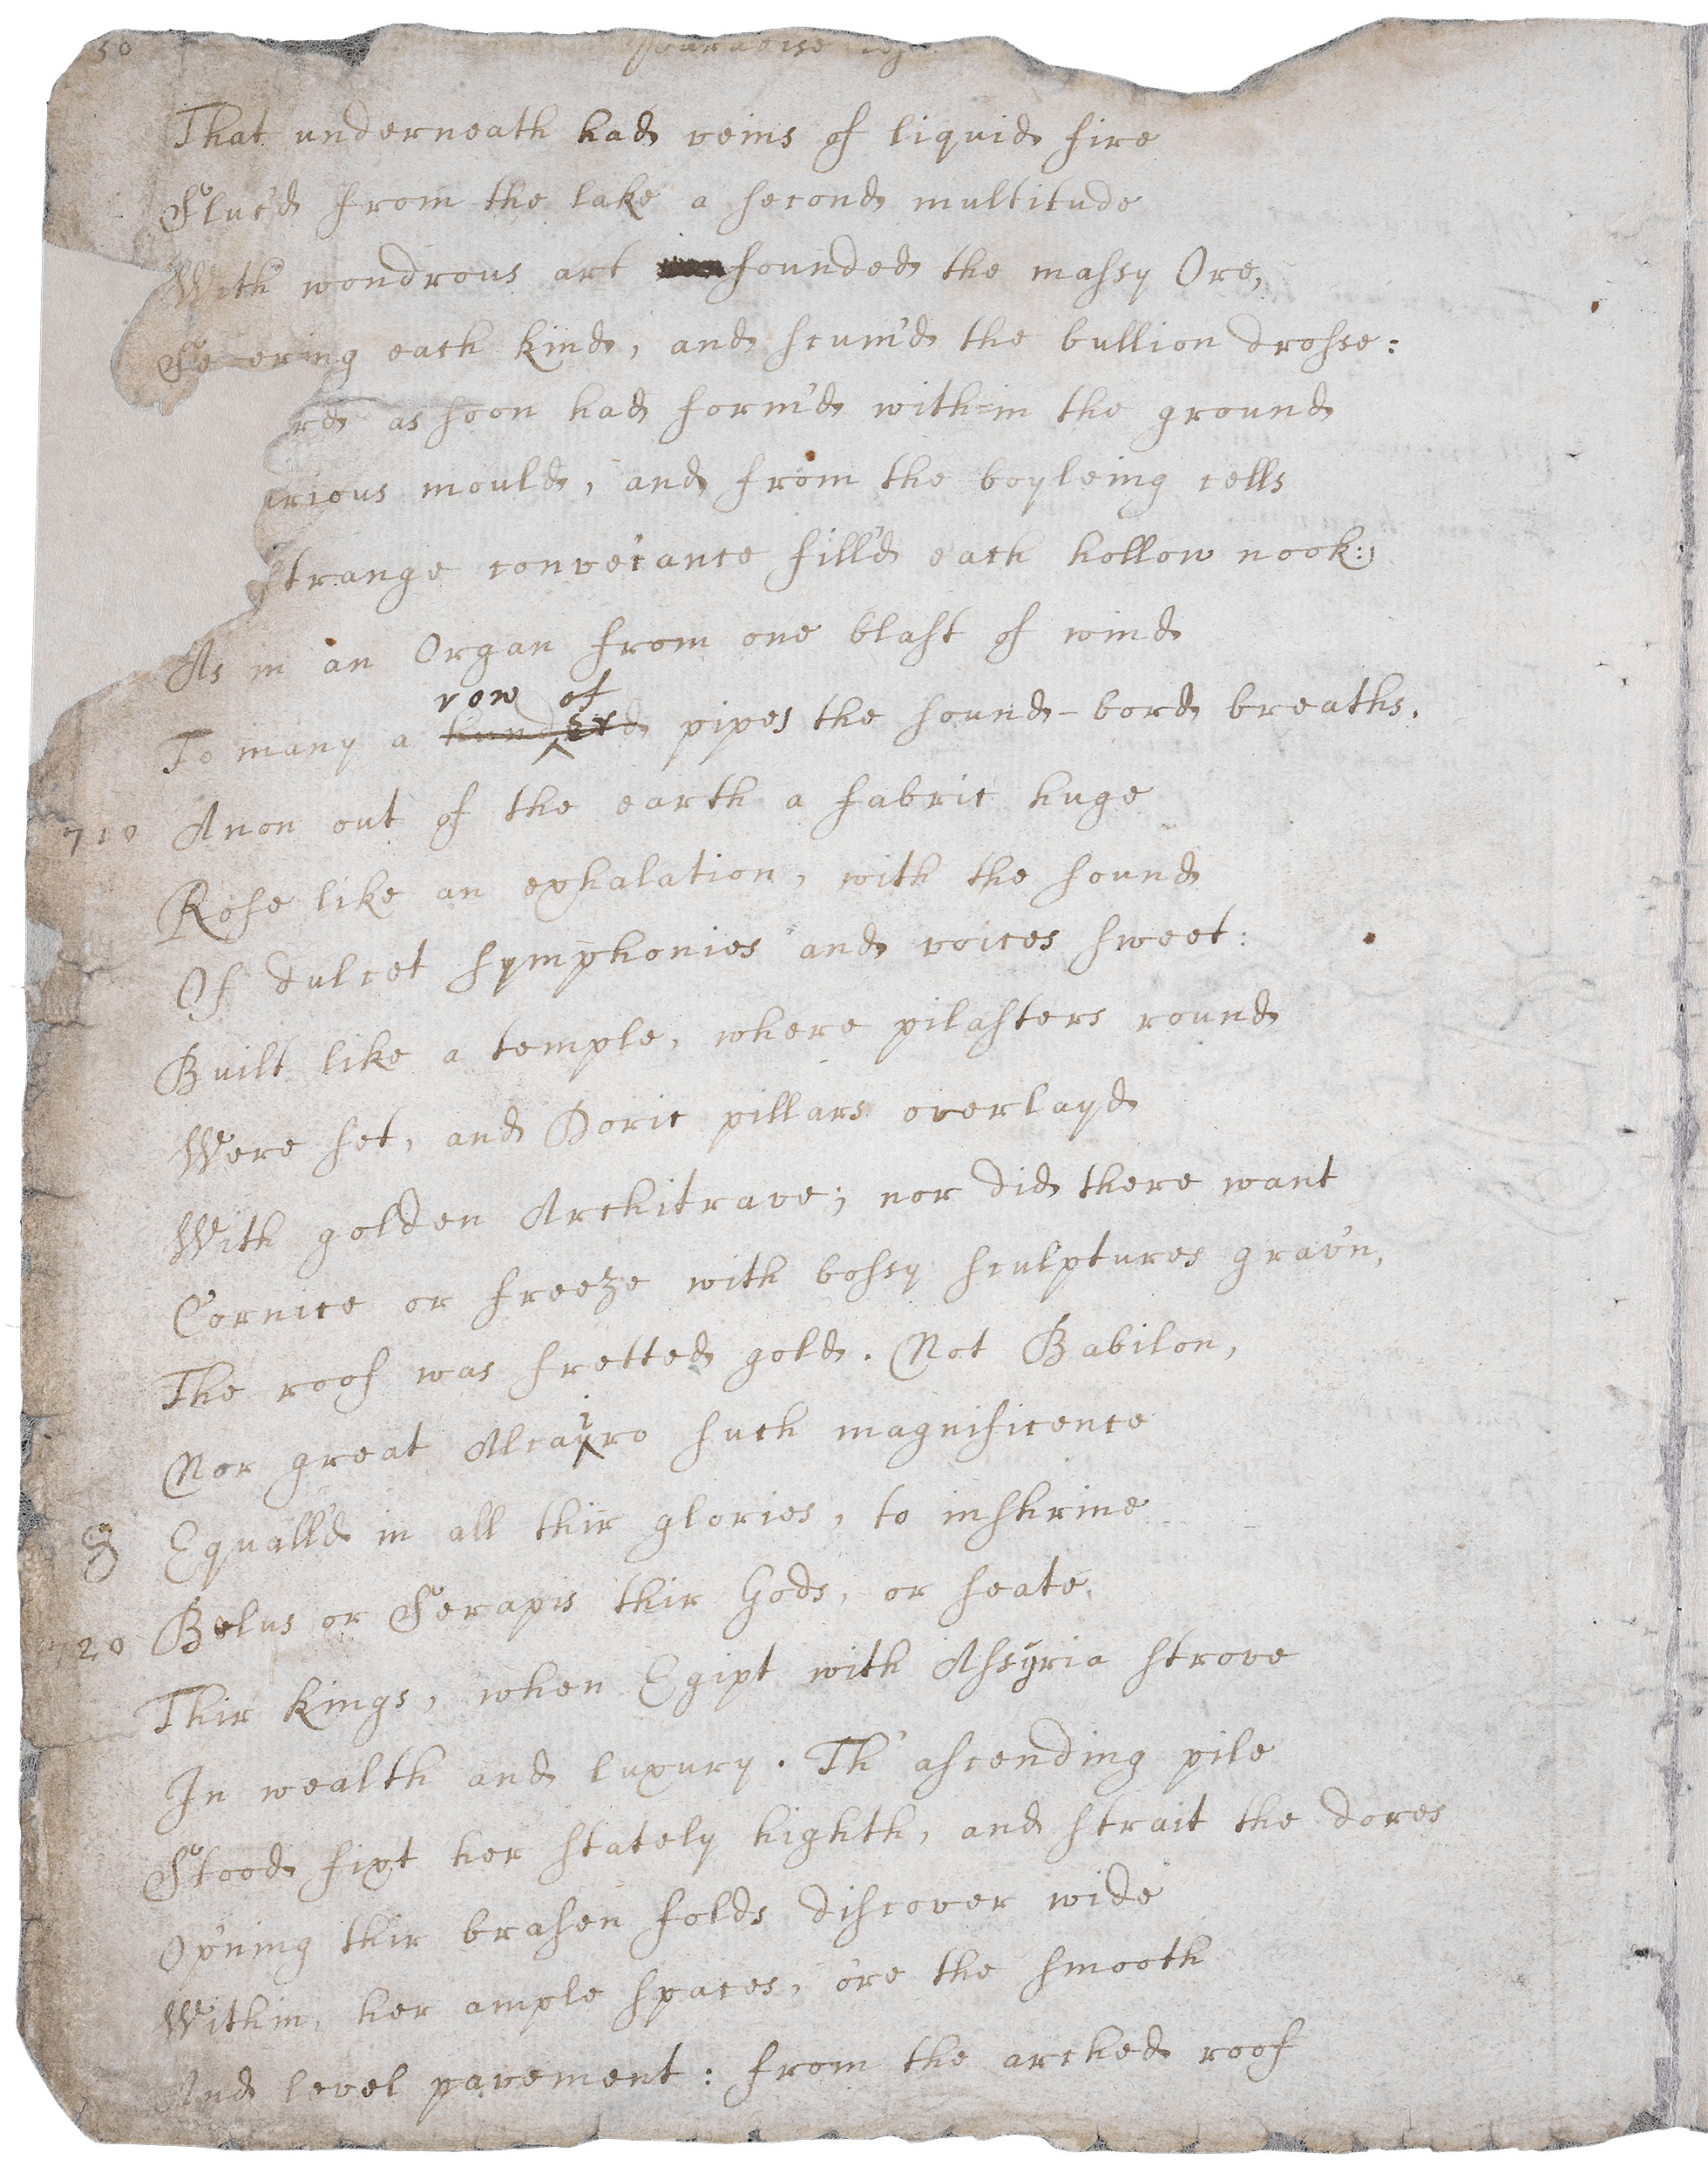 30
Paradise lost
That underneath had veins of liquid fire
Sluc'd from the lake a second multitude
With wondrous art founded the massy Ore,
Se ering each kind, and scum'd the bullion drosse:
rd as soon had form'd with-in the ground
arious mould, and from the boyleing cells
strange conveiance fill'd each hollow nook:,
As in an Organ from one blast of wind
row of
To many a hunderd pipes the sound-bord breaths.
710 Anon out of the earth a fabric huge
Rose like an exhalation, with the sound
Of dulcet symphonies and voices sweet:
Built like a temple, where pilasters round
Were set, and Doric pillars overlayd
With golden Architrave; nor did there want
Cornice or freeze with bossy sculptures grav'n,
The roof was fretted gold. Not Babilon,
i
Nor great Alcayro such magnificence
Equall'd in all thir glories, to inshrine
720 Belus or Serapis thir Gods, or seate
Thir kings, when Egipt with Assyria strove
In wealth and luxury. Th' ascending pile
Stood fixt her stately highth, and strait the dores
Op'ning thir brasen folds discover wide
Within, her ample spaces, o're the smooth
And level pavement: from the arched roof